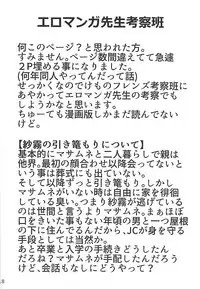 エロマンガ先生考察班
何このページ？と思われた方。
すみません。ページ数間違えてて急遽
２Ｐ埋める事になりました。
(何年同人やってんだって話)
せっかくなのでけものフレンズ考察班に
あやかってエロマンガ先生の考察でも
しようかなと思います。
ちゅーても漫画版しかまだ読んでない
けど。
【紗霧の引き篭もりについて】
基本的にマサムネと二人暮らしで親は
他界。最初の顔合わせ以降会ってないと
いう事は葬式にも出ていない。
そして以降ずっと引き篭もり。しかし
マサムネがいない時は自由に家を徘徊
している臭い。つまり紗霧が避けている
のは世間と言うよりマサムネ。まぁほぼ
口をきいた事もない年頃の男と一つ屋根
の下に住んでるんだから、JCが身を守る
手段としては当然か。
あと卒業と入学の手続きどうしたん
だろね？マサムネが手配したんだろう
けど、会話もなしにどうやって？